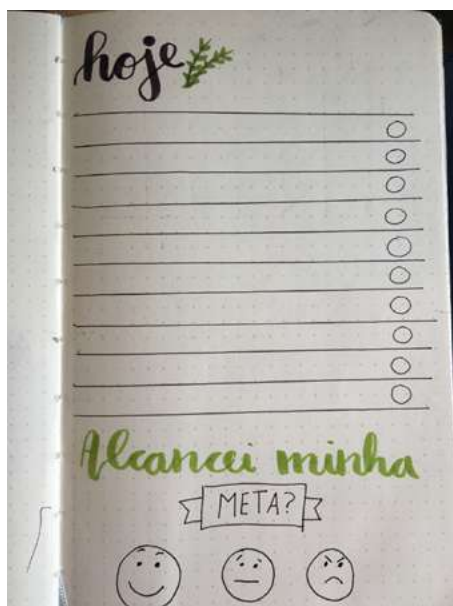 hoje
Alcancei minha
META?